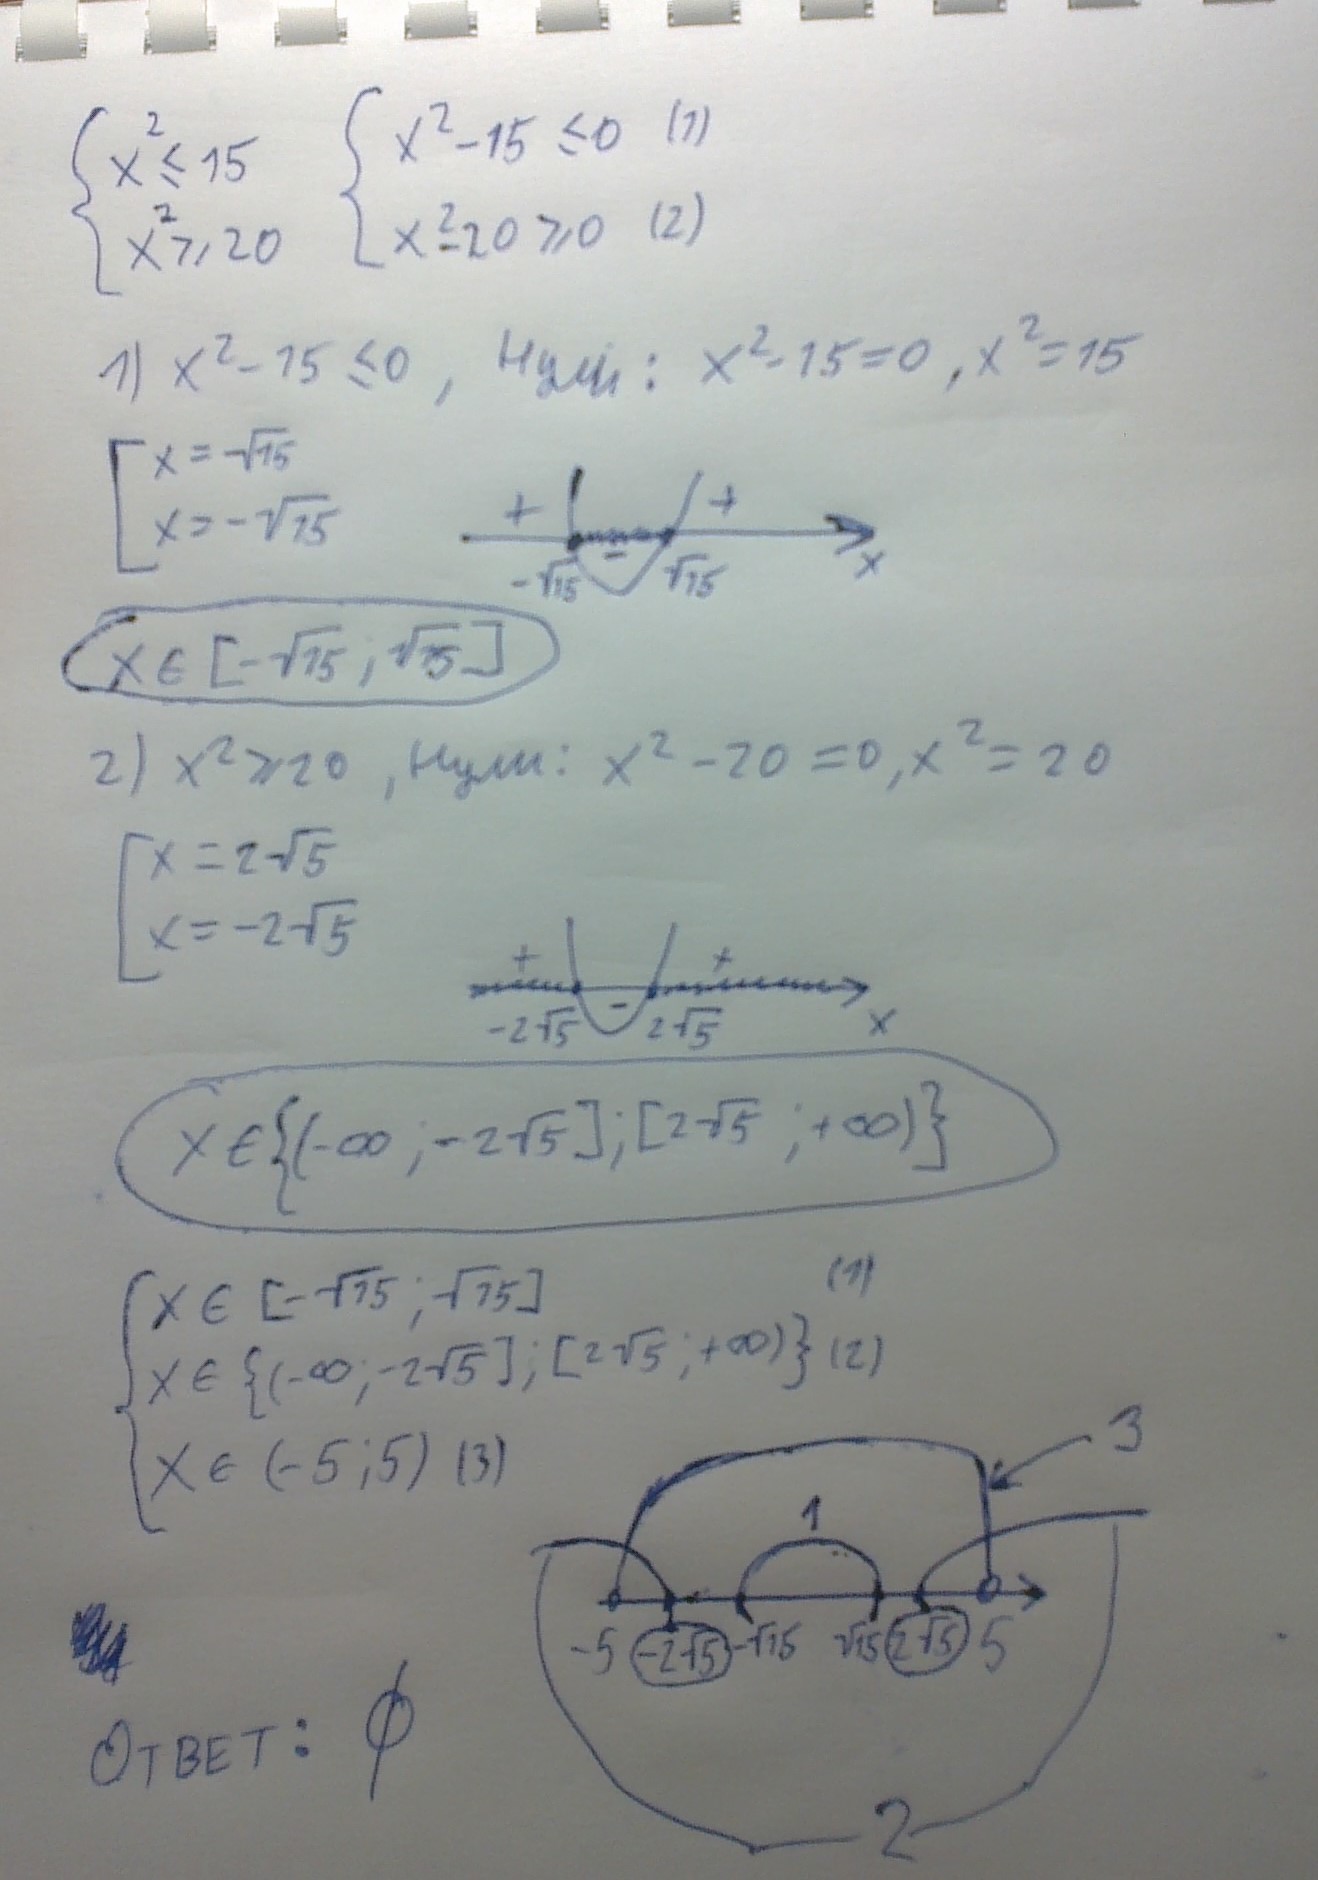 { x² ≤ 15 { x² - 15 ≤ 0 (1)
x² ≥ 20 x² - 20 ≥ 0 (2)
1) x² - 15 ≤ 0, Нули: x² - 15 = 0, x² = 15
[ x = √15
x = -√15
+ - +
-√15 √15 x
x ∈ [-√15; √15]
2) x² ≥ 20, Нули: x² - 20 = 0, x² = 20
[ x = 2√5
x = -2√5
+ - +
-2√5 2√5 x
x ∈ {(-∞; -2√5]; [2√5; +∞)}
{ x ∈ [-√15; √15] (1)
x ∈ {(-∞; -2√5]; [2√5; +∞)} (2)
x ∈ (-5; 5) (3)
3
1
-5 -2√5 -√15 √15 2√5 5
Ответ: ∅
2